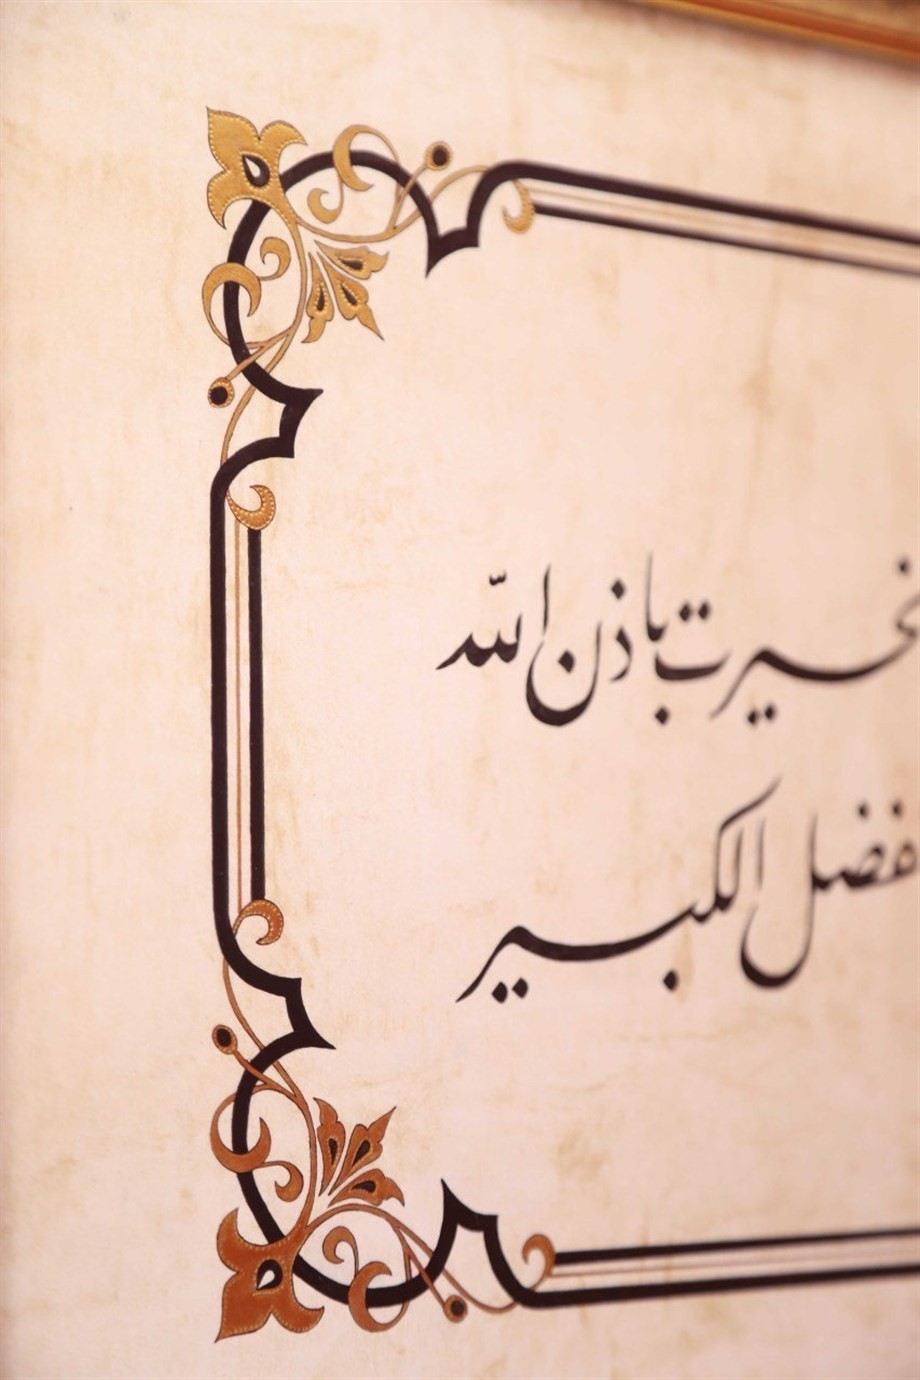 خيرت باذن اللّه
فضل الكبير